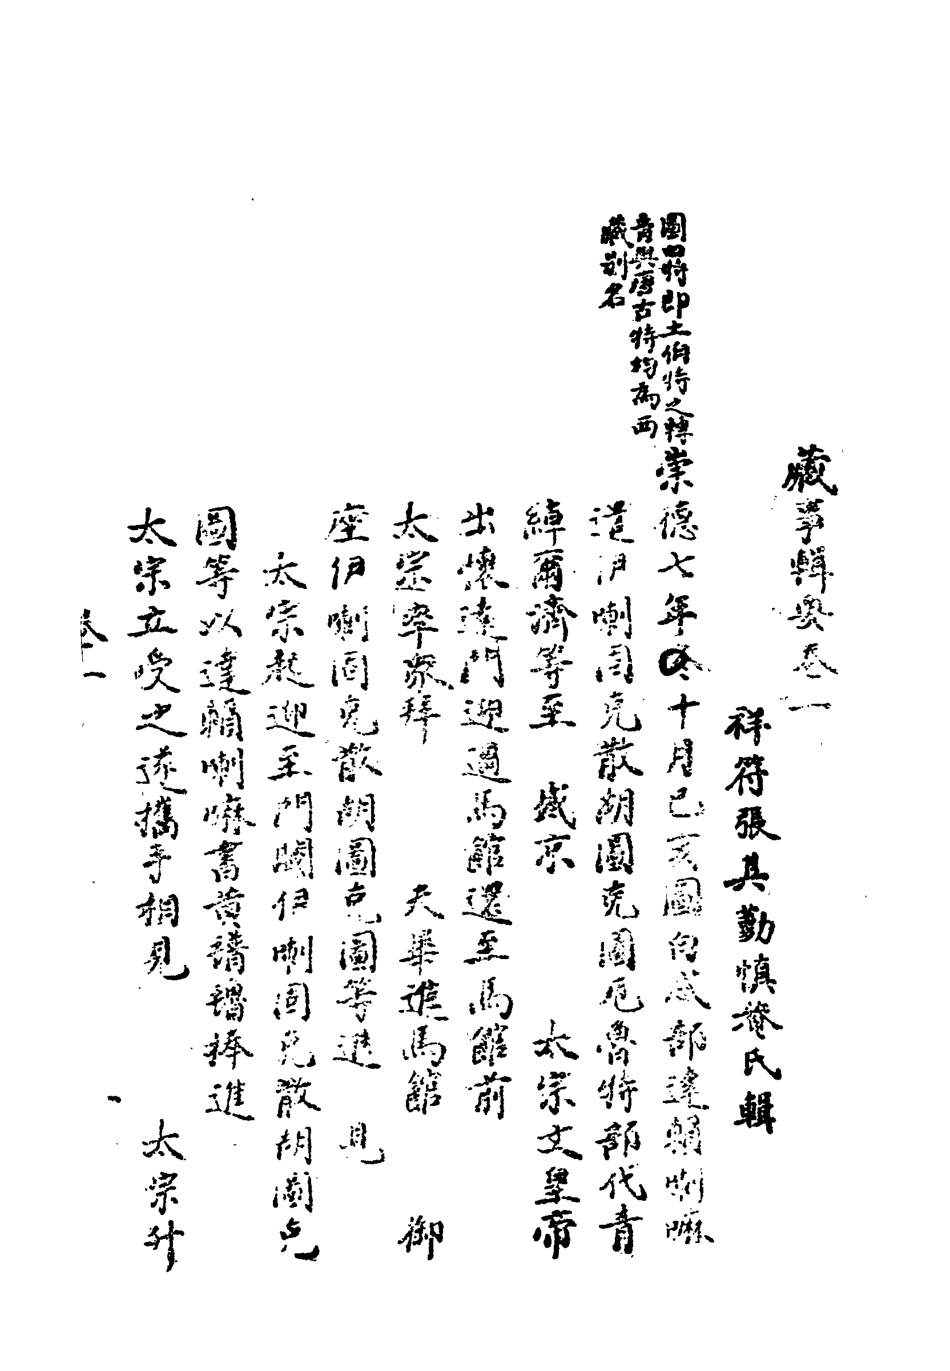 藏事輯要卷一
祥符張其勤慎菴氏輯
圖白特即土伯特之轉
音與唐古特均為西
藏別名
崇德七年冬十月己亥圖白忒部達賴喇嘛
遣伊喇固克散胡圖克圖厄魯特部代青
綽爾濟等至 盛京 太宗文皇帝
出懷遠門迎迓馬館還至馬館前
太宗率眾拜 天畢進馬館 御
座伊喇固克散胡圖克圖等進 見
太宗起迎至門閾伊喇固克散胡圖克
圖等以達賴喇嘛書黃譜鐠捧進
太宗立受之遂攜手相見 太宗升
卷一
一